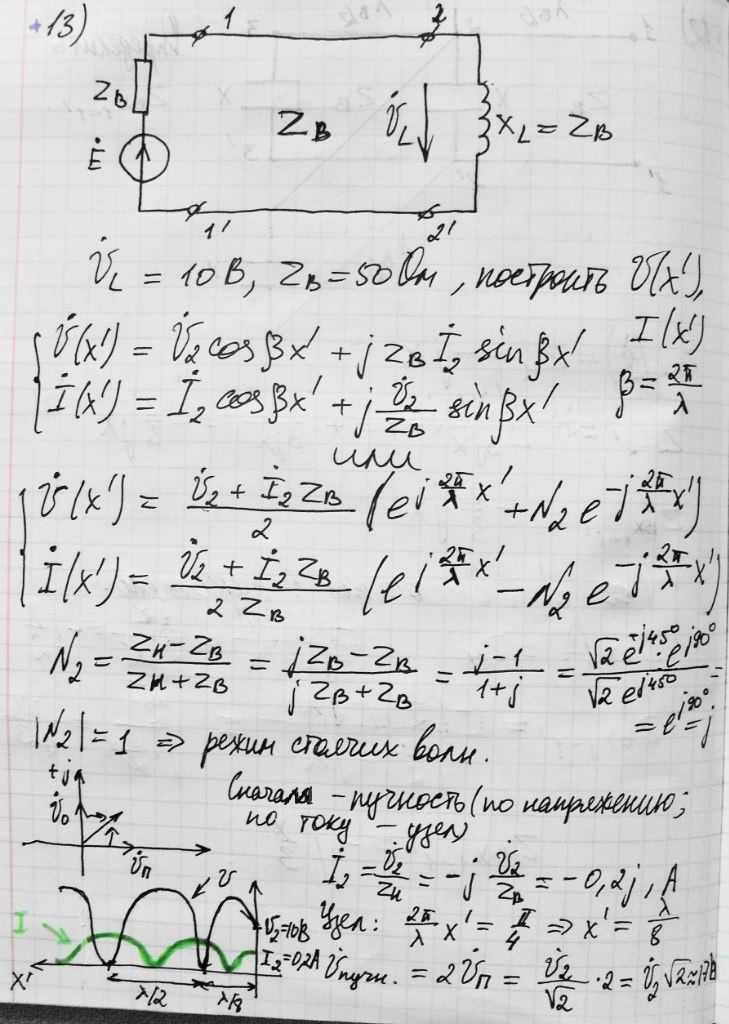 +13)
1
2
Z_B
Ė
Z_B
U̇_L
X_L = Z_B
1'
2'
U̇_L = 10 В, Z_B = 50 Ом, построить U(x'),
I(x')
U̇(x') = U̇₂ cos βx' + j Z_B İ₂ sin βx'
β = 2π/λ
İ(x') = İ₂ cos βx' + j U̇₂/Z_B sin βx'
или
U̇(x') = (U̇₂ + İ₂ Z_B)/2 (e^{j 2π/λ x'} + N₂ e^{-j 2π/λ x'})
İ(x') = (U̇₂ + İ₂ Z_B)/(2 Z_B) (e^{j 2π/λ x'} - N₂ e^{-j 2π/λ x'})
N₂ = (Z_н - Z_B)/(Z_н + Z_B) = (j Z_B - Z_B)/(j Z_B + Z_B) = (j - 1)/(1 + j) = (√2 e^{j45°} · e^{j90°})/(√2 e^{j45°}) =
= e^{j90°} = j
|N₂| = 1 ⇒ режим стоячих волн.
+j
U̇₀
U̇_п
Сначала - пучность (по напряжению;
по току - узел)
İ₂ = U̇₂/Z_н = -j U̇₂/Z_B = -0,2j, А
Узел: 2π/λ x' = π/4 ⇒ x' = λ/8
U̇_пучн. = 2 U̇_п = U̇₂/√2 · 2 = U̇₂ √2 ≈ 14 В
U
I
U₂=10В
I₂=0,2А
x'
λ/2
λ/8